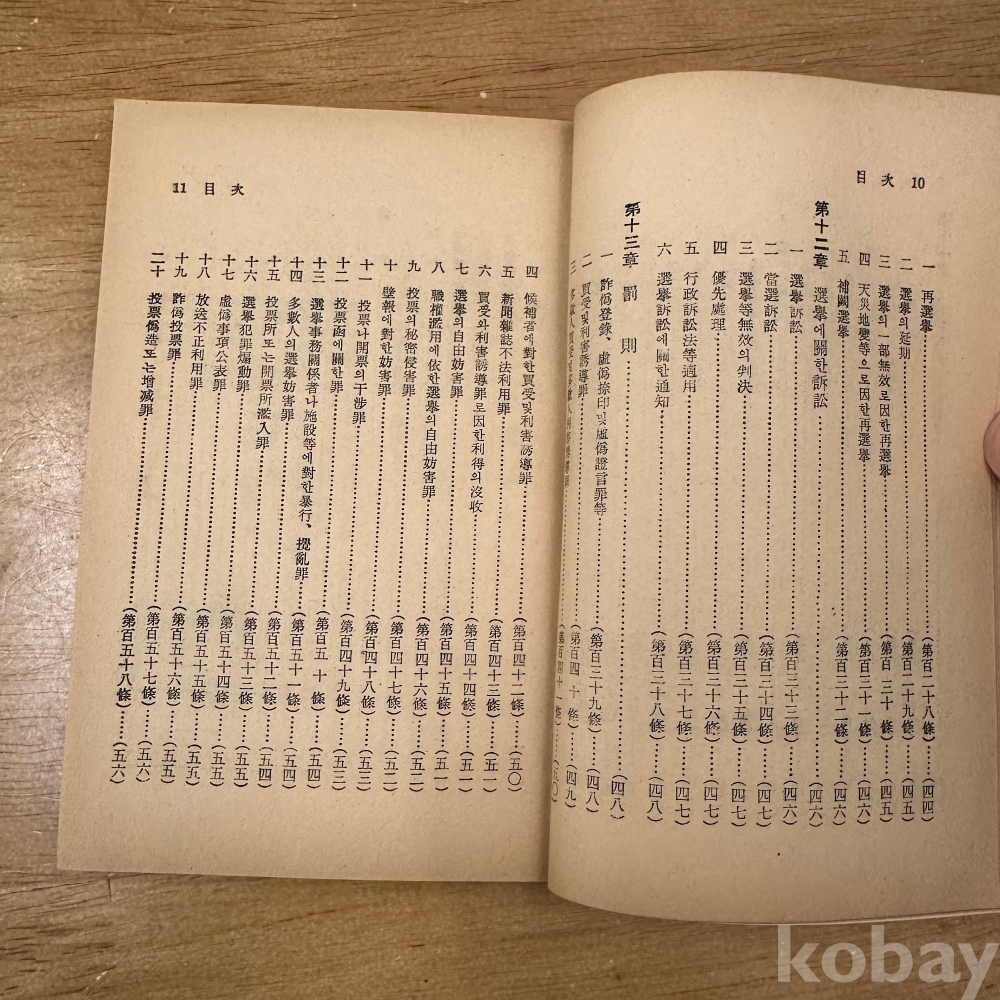 目次 10
一 再選擧(第百二十八條)(四四)
二 選擧의延期(第百二十九條)(四五)
三 選擧의一部無效로因한再選擧(第百三十條)(四五)
四 天災地變等으로因한再選擧(第百三十一條)(四六)
五 補闕選擧(第百三十二條)(四六)
第十二章 選擧에關한訴訟(四六)
一 選擧訴訟(第百三十三條)(四六)
二 當選訴訟(第百三十四條)(四六)
三 選擧等無效의判決(第百三十五條)(四七)
四 優先處理(第百三十六條)(四七)
五 行政訴訟法等適用(第百三十七條)(四七)
六 選擧訴訟에關한通知(第百三十八條)(四八)
第十三章 罰則(四八)
一 詐僞登錄、虛僞捺印및虛僞證言罪等(第百三十九條)(四八)
二 買受및利害誘導罪(第百四十條)(四九)
三 多數人買受 利害誘導罪(第百四十一條)(五〇)
11 目次
四 候補者에對한買受및利害誘導罪(第百四十二條)(五〇)
五 新聞雜誌不法利用罪(第百四十三條)(五一)
六 買受와利害誘導罪로因한利得의沒收(第百四十四條)(五一)
七 選擧의自由妨害罪(第百四十五條)(五一)
八 職權濫用에依한選擧의自由妨害罪(第百四十六條)(五二)
九 投票의秘密侵害罪(第百四十七條)(五二)
十 壁報에對한妨害罪(第百四十八條)(五三)
十一 投票나開票의干涉罪(第百四十九條)(五三)
十二 投票函에關한罪(第百五十條)(五四)
十三 選擧事務關係者나施設等에對한暴行、攪亂罪(第百五十一條)(五四)
十四 多數人의選擧妨害罪(第百五十二條)(五四)
十五 投票所또는開票所濫入罪(第百五十三條)(五五)
十六 選擧犯罪煽動罪(第百五十四條)(五五)
十七 虛僞事項公表罪(第百五十五條)(五五)
十八 放送不正利用罪(第百五十六條)(五五)
十九 詐僞投票罪(第百五十七條)(五六)
二十 投票僞造또는增減罪(第百五十八條)(五六)
kobay